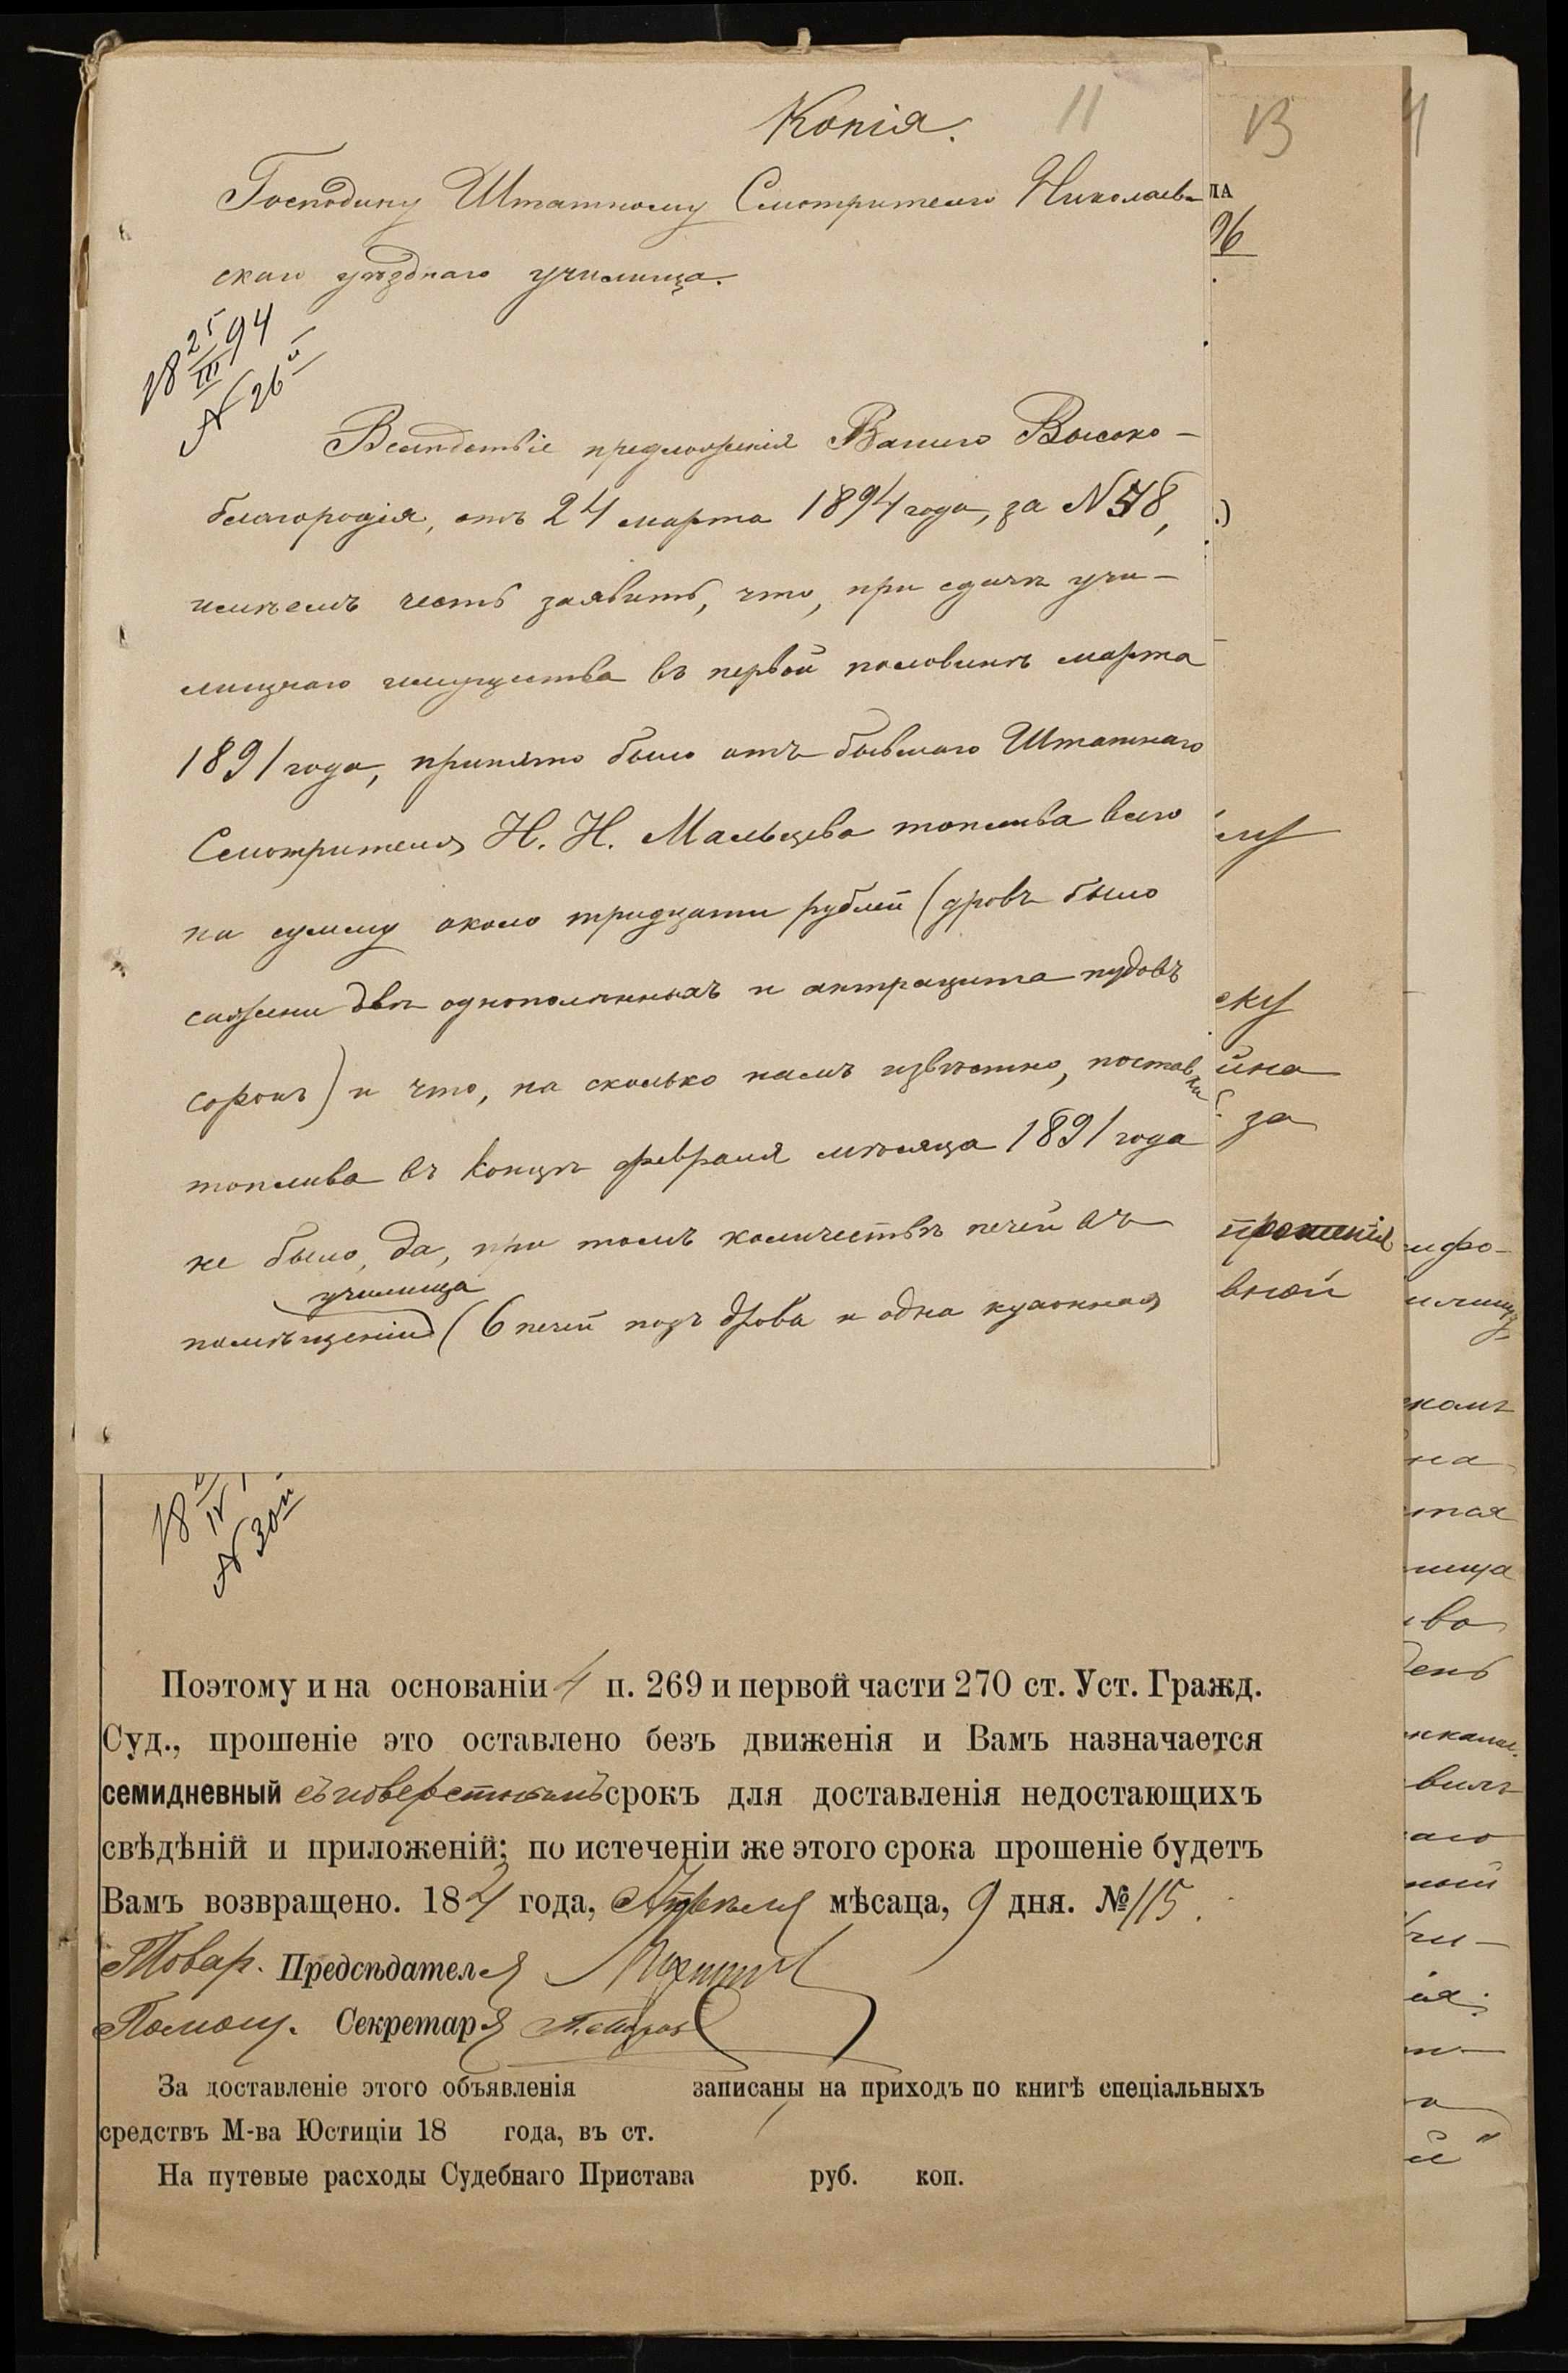 Копія. 11
Господину Штатному Смотрителю Николаев-
скаго уѣзднаго училища.
18 25/III 94
№ 26й
Вслѣдствіе предложенія Вашего Высоко-
благородія, отъ 24 марта 1894 года, за № 78,
имѣемъ честь заявить, что, при сдачѣ учи-
лищнаго имущества въ первой половинѣ марта
1891 года, принято было отъ бывшаго Штатнаго
Смотрителя Н. Н. Мальцева топлива всего
на сумму около тридцати рублей (дровъ было
сажени двѣ однополѣнныхъ и антрацита пудовъ
сорокъ) и что, на сколько намъ извѣстно, поставки
топлива въ концѣ февраля мѣсяца 1891 года
не было, да, при томъ количествѣ печей въ
училища
помѣщеніи (6 печей подъ дрова и одна кухонная
13
ПА
96
ему
ску
йна
за
прошенія
вной
18 IV
№ 30й
Поэтому и на основаніи 4 п. 269 и первой части 270 ст. Уст. Гражд.
Суд., прошеніе это оставлено безъ движенія и Вамъ назначается
семидневный съ поверстнымъ срокъ для доставленія недостающихъ
свѣдѣній и приложеній; по истеченіи же этого срока прошеніе будетъ
Вамъ возвращено. 1894 года, Апрѣля мѣсаца, 9 дня. № 115.
Товар. Предсѣдателя
Помощ. Секретаря
За доставленіе этого объявленія записаны на приходъ по книгѣ спеціальныхъ
средствъ М-ва Юстиціи 18 года, въ ст.
На путевые расходы Судебнаго Пристава руб. коп.